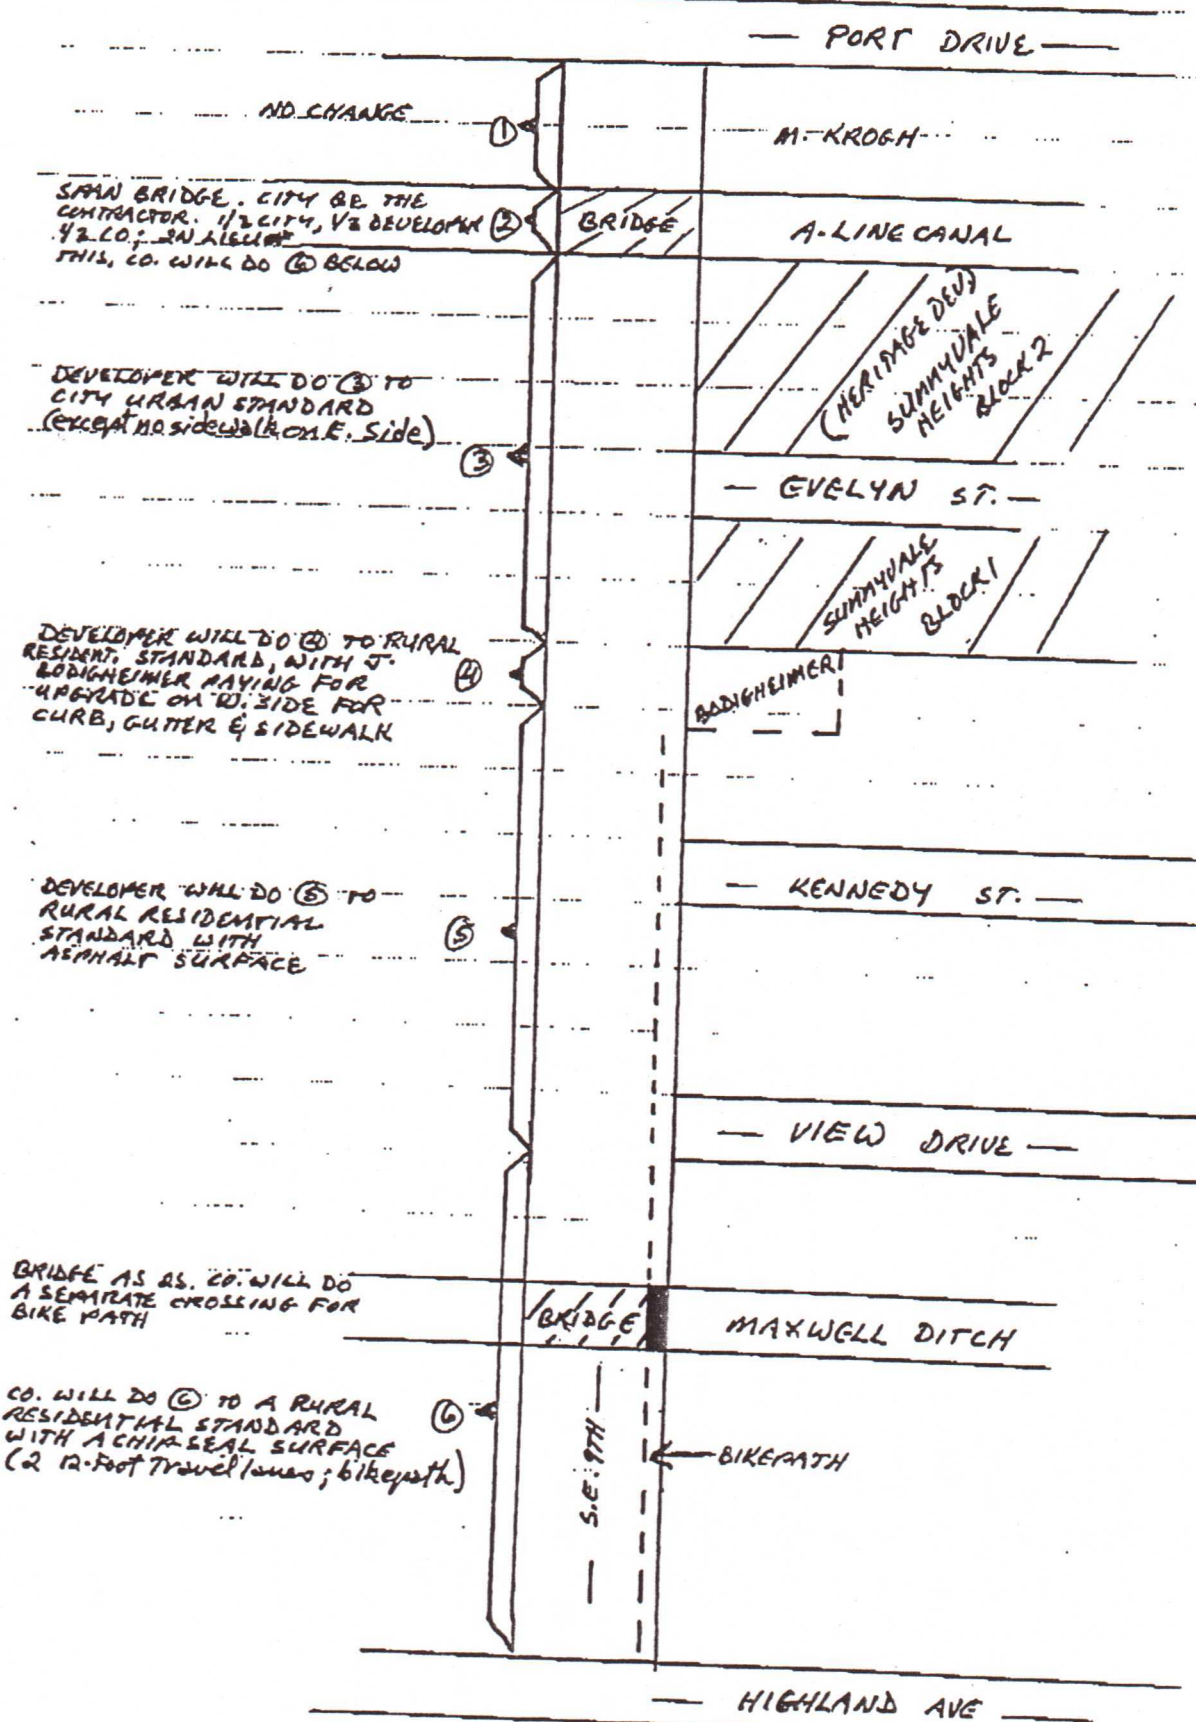 — PORT DRIVE —
NO CHANGE
①
M. KROGH
SPAN BRIDGE. CITY BE THE
CONTRACTOR. 1/2 CITY, 1/2 DEVELOPER ②
1/2 CO; IN LIEU OF
THIS, CO. WILL DO ⑥ BELOW
BRIDGE
A-LINE CANAL
(HERITAGE DEV)
SUNNYVALE
HEIGHTS
BLOCK 2
DEVELOPER WILL DO ③ TO
CITY URBAN STANDARD
(except no sidewalk on E. Side)
③
— EVELYN ST. —
SUNNYVALE
HEIGHTS
BLOCK 1
DEVELOPER WILL DO ④ TO RURAL
RESIDENT. STANDARD, WITH J.
BODIGHEIMER PAYING FOR
UPGRADE ON W. SIDE FOR
CURB, GUTTER & SIDEWALK
④
BODIGHEIMER
— KENNEDY ST. —
DEVELOPER WILL DO ⑤ TO
RURAL RESIDENTIAL
STANDARD WITH
ASPHALT SURFACE
⑤
— VIEW DRIVE —
BRIDGE AS IS. CO. WILL DO
A SEPARATE CROSSING FOR
BIKE PATH
BRIDGE
MAXWELL DITCH
CO. WILL DO ⑥ TO A RURAL
RESIDENTIAL STANDARD
WITH A CHIP SEAL SURFACE
(2 12-Foot Travel lanes; bikepath)
⑥
— S.E. 9TH —
BIKEPATH
— HIGHLAND AVE —